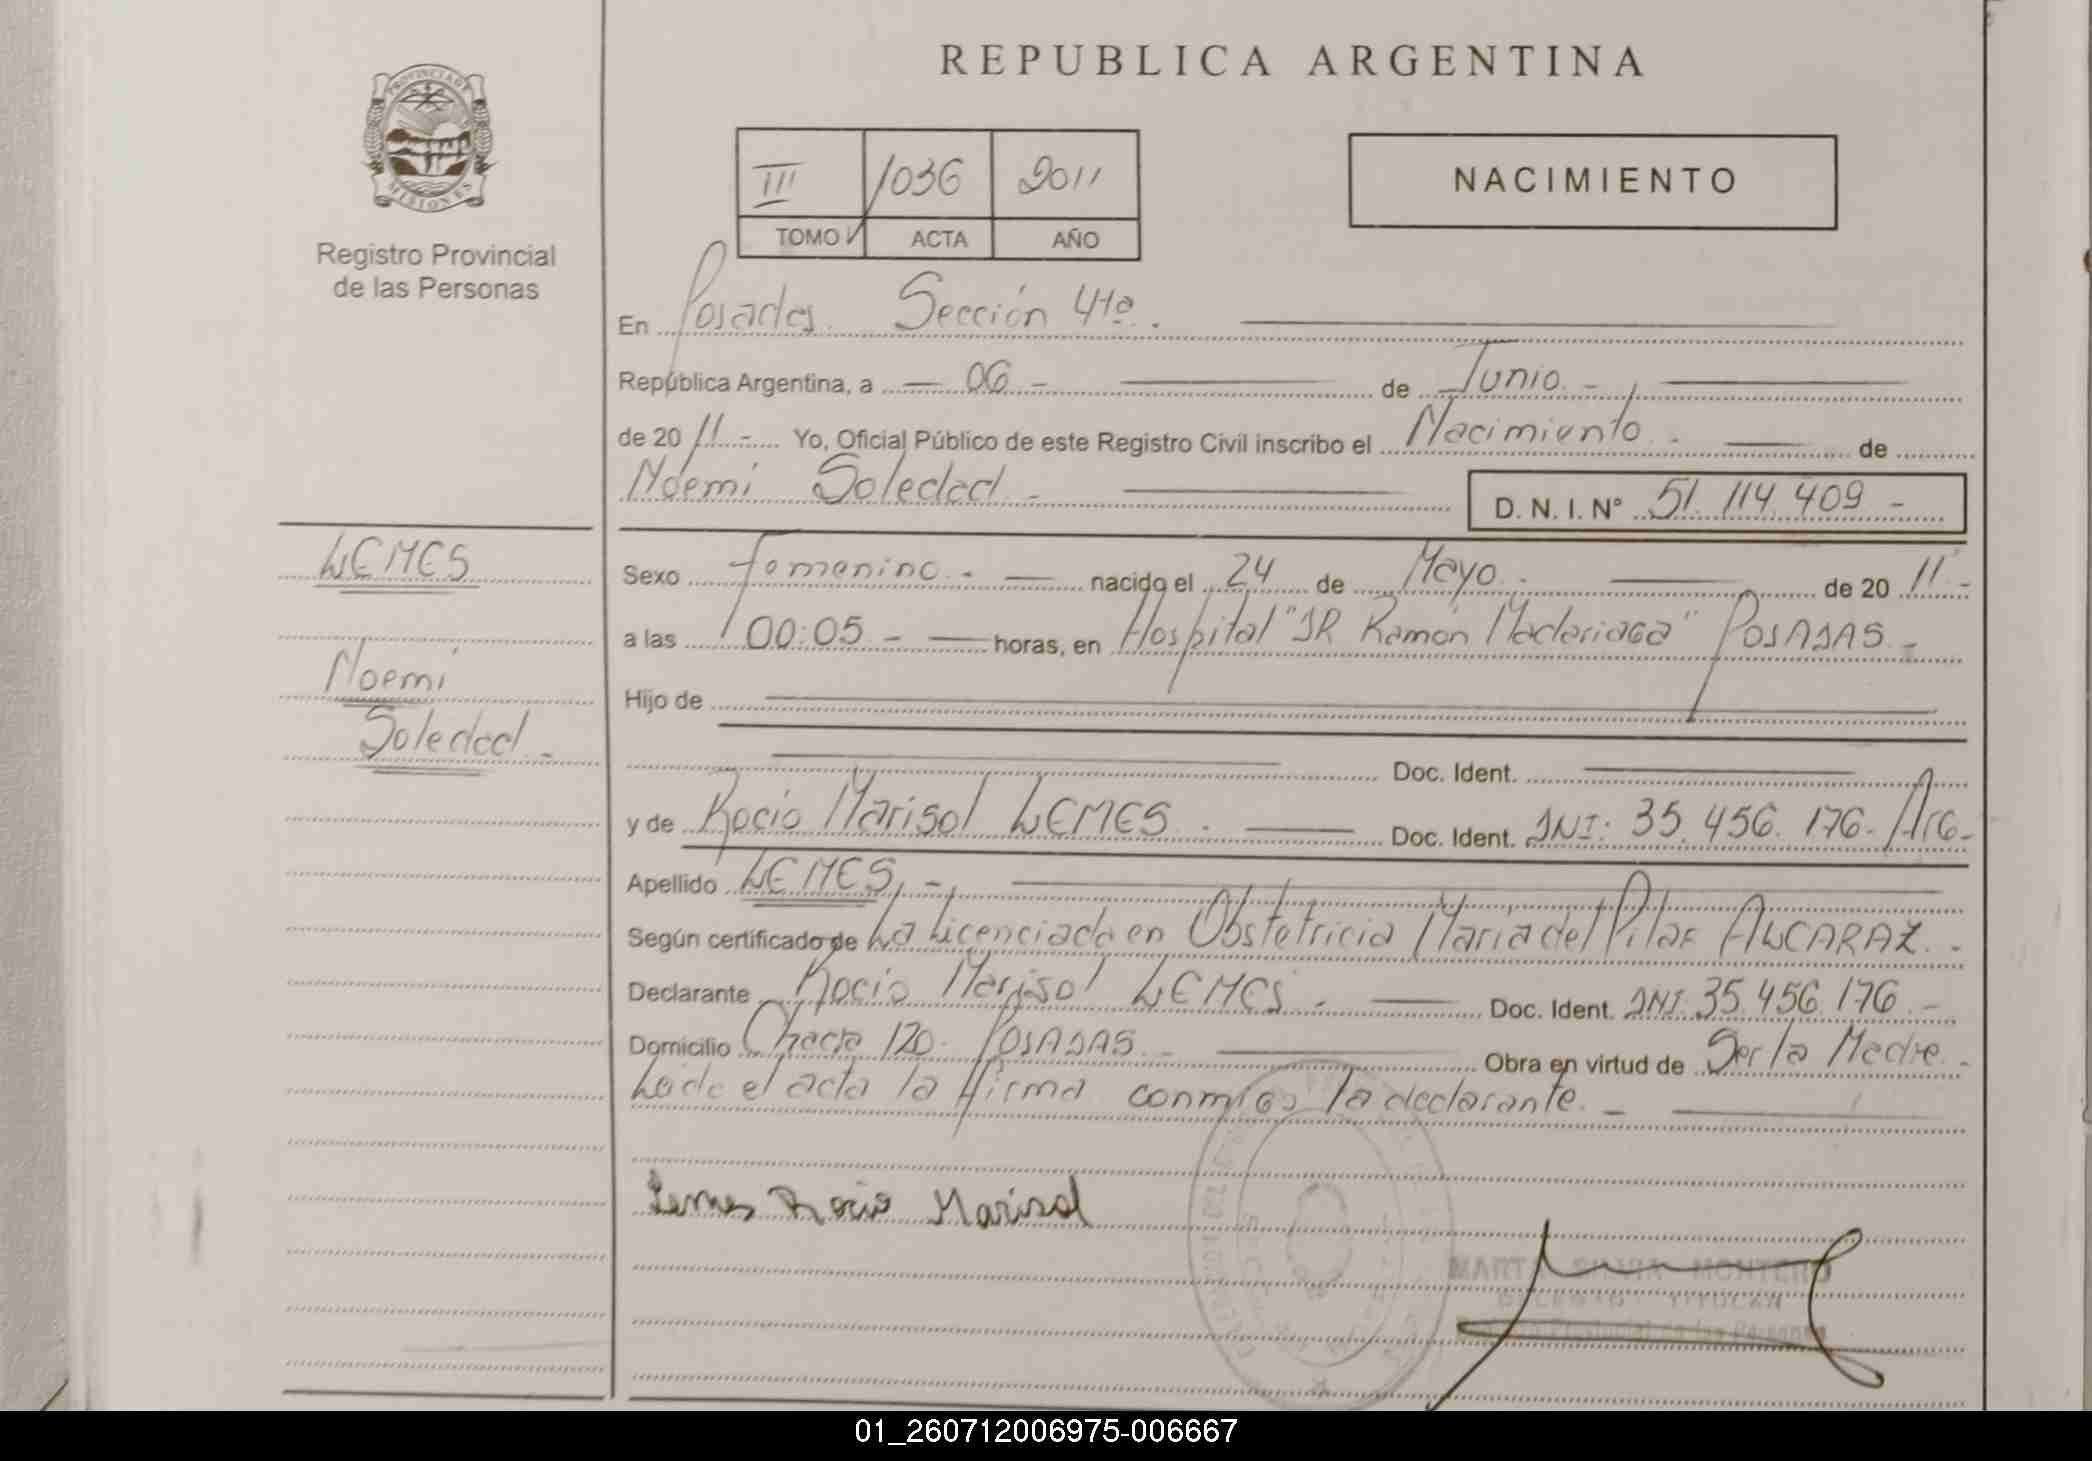 PROVINCIA DE
MISIONES
Registro Provincial
de las Personas
REPUBLICA ARGENTINA
III 1036 2011
TOMO ACTA AÑO
NACIMIENTO
En Posadas Sección 4ta.
República Argentina, a — 06 - de Junio. -
de 20 11 - Yo, Oficial Público de este Registro Civil inscribo el Nacimiento. de
Noemi Soledad - D. N. I. Nº 51.114.409 -
LEMES
Noemi
Soledad. -
Sexo Femenino. - nacido el 24 de Mayo. de 20 11 -
a las 00:05 - horas, en Hospital "DR Ramón Madariaga" POSADAS -
Hijo de
Doc. Ident.
y de Rocio Marisol LEMES. Doc. Ident. DNI: 35.456.176. Arg -
Apellido LEMES, -
Según certificado de La Licenciada en Obstetricia Maria del Pilar ALCARAZ. -
Declarante Rocio Marisol LEMES. - Doc. Ident. DNI. 35.456.176 -
Domicilio Chacra 120. POSADAS. - Obra en virtud de Ser la Madre -
Leida el acta la firma conmigo la declarante. -
Lemes Rocio Marisol
MARTA MONTERO
TITULAR
Provincial de las Personas
01_260712006975-006667